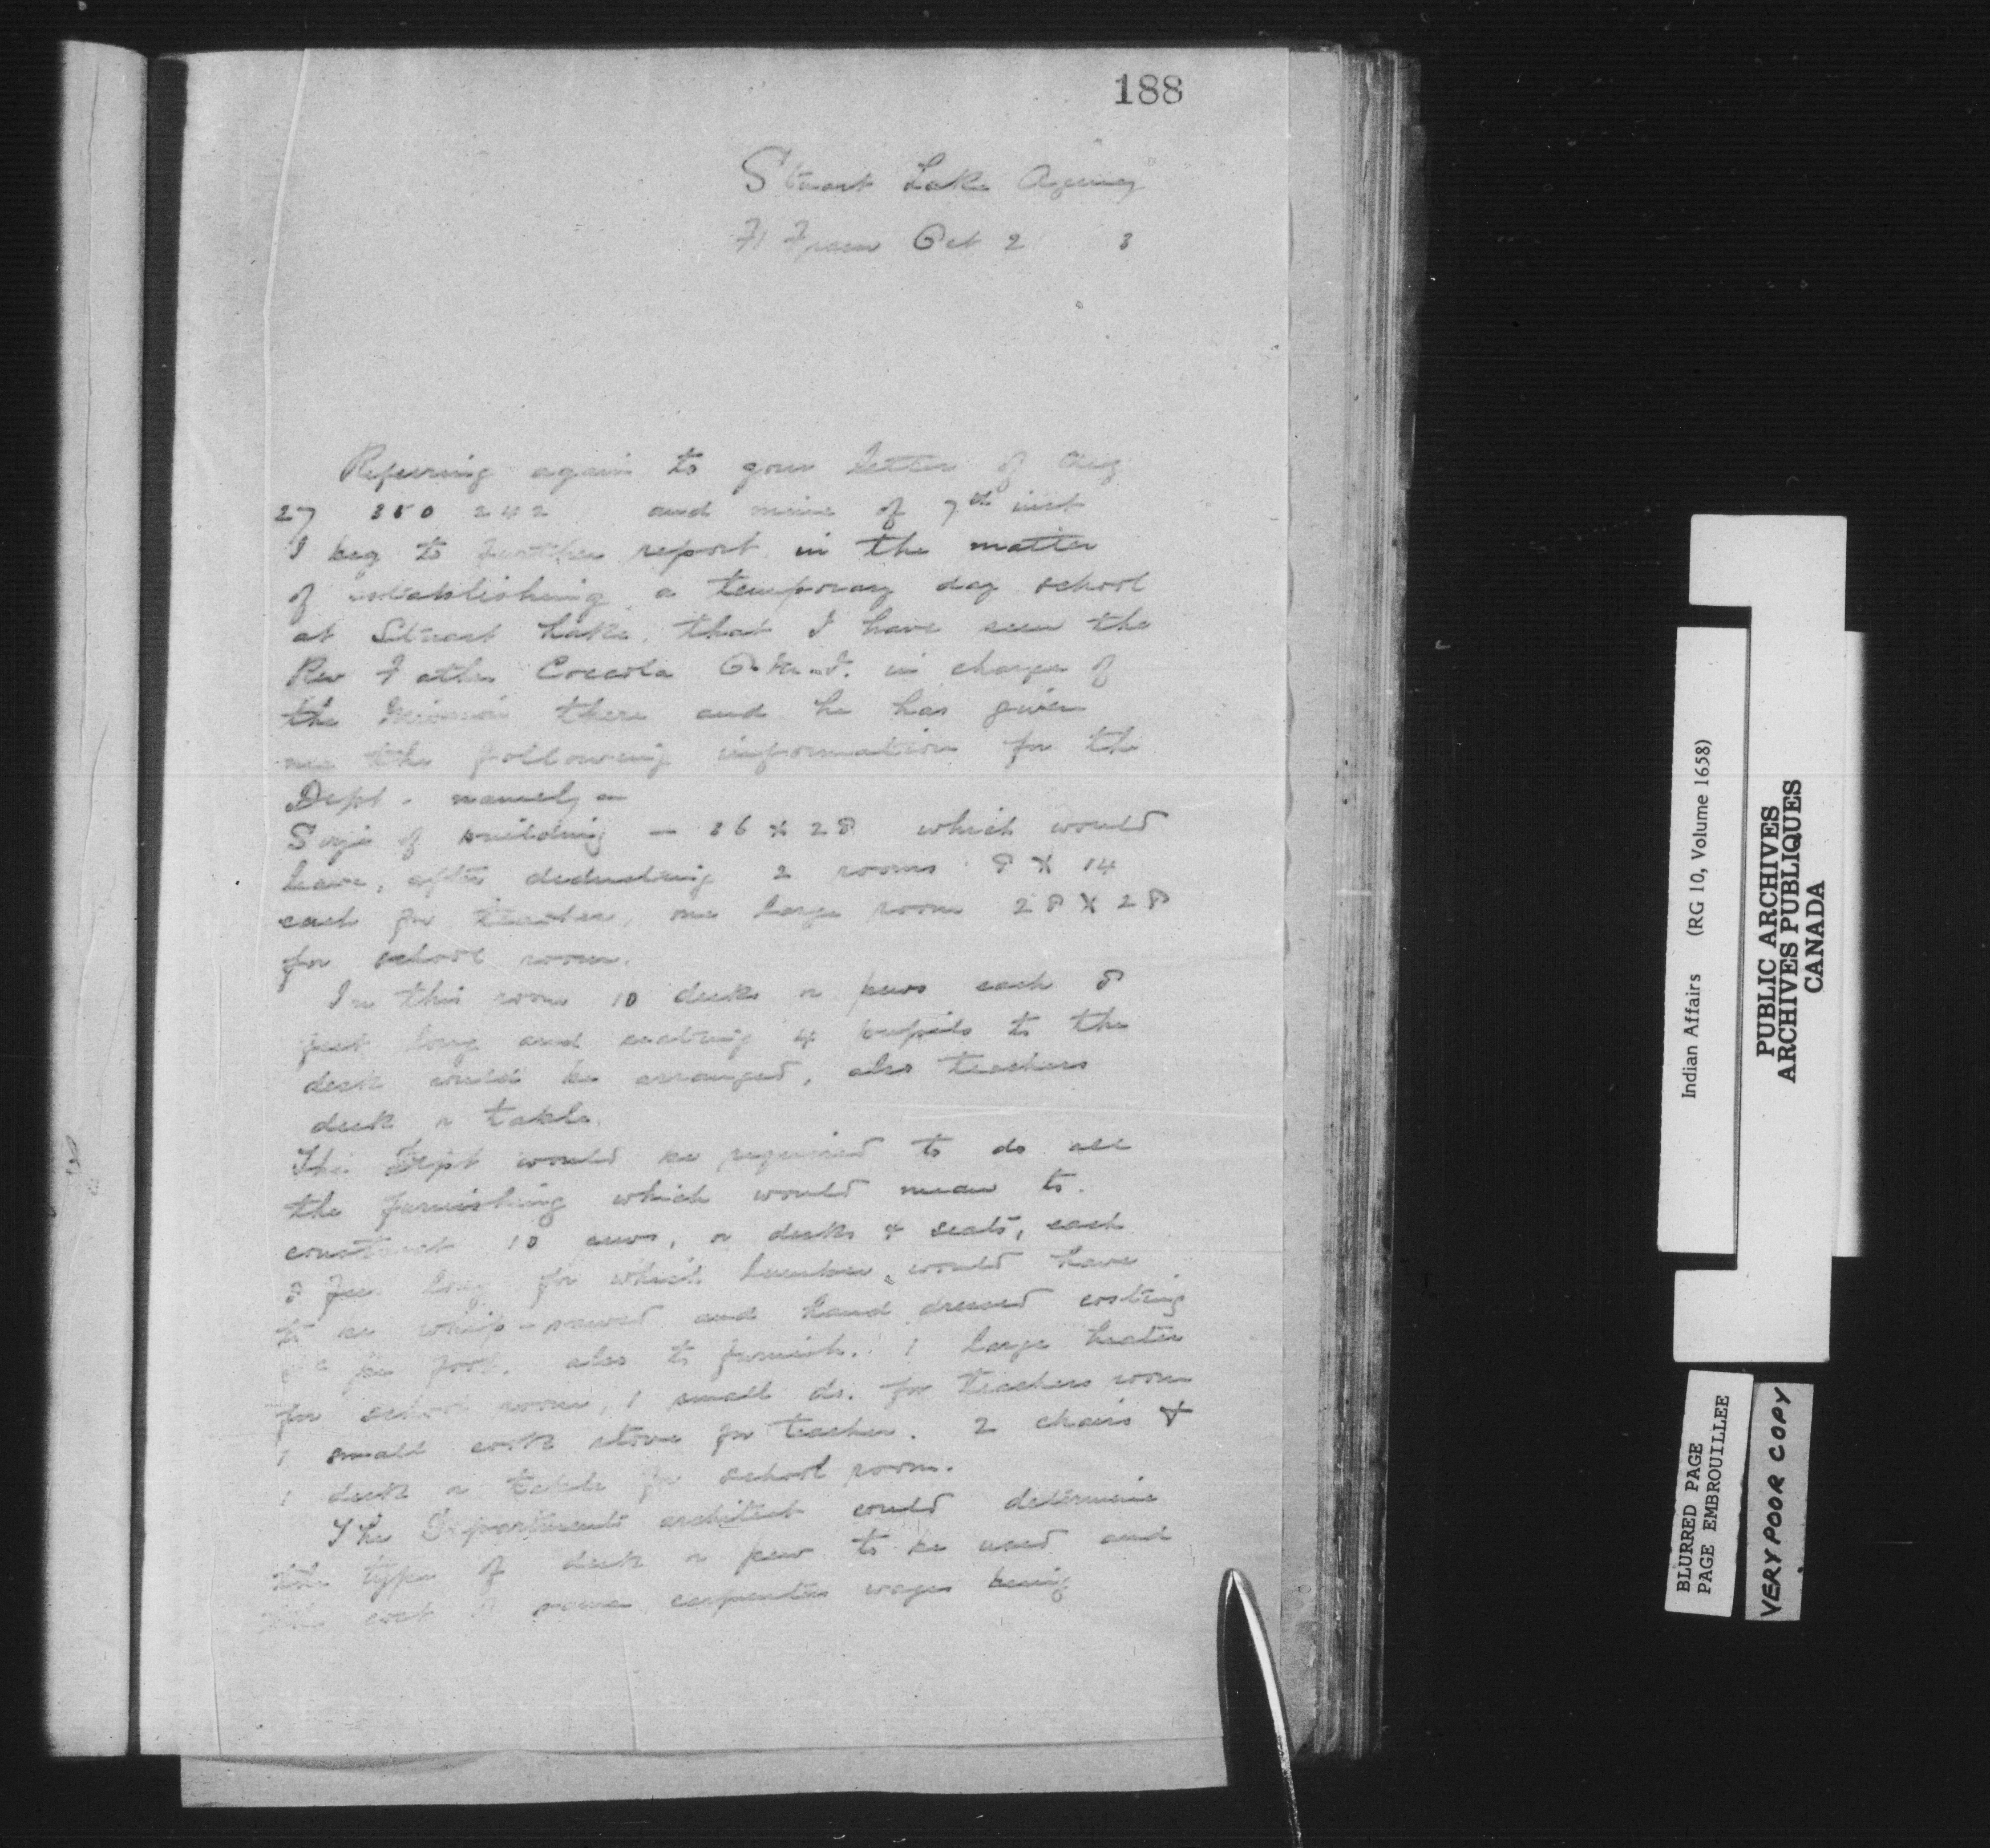 188
Stuart Lake Agency
Ft Fraser Oct 2 3
Referring again to your letter of Aug
27 350 242 and mine of 7th inst
I beg to further report in the matter
of establishing a temporary day school
at Stuart Lake, that I have seen the
Rev Father Coccola O.M.I. in charge of
the Mission there and he has given
me the following information for the
Dept. namely -
Size of building - 36 x 28 which would
leave, after deducting 2 rooms 8 x 14
each for teacher, one large room 28 x 28
for school room.
In this room 10 desks or pews each 8
feet long and seating 4 pupils to the
desk could be arranged, also teachers
desk or table.
The Dept would be required to do all
the furnishing which would mean to
construct 10 pews, or desks & seats, each
8 feet long for which lumber would have
to be whip-sawed and hand dressed costing
per foot. also to furnish. 1 large heater
for school room, 1 small do. for teachers room
1 small cook stove for teacher. 2 chairs &
1 desk or table for school room.
The Departments architect could determine
the type of desk or pew to be used and
the cost of same carpenters wages being
Indian Affairs (RG 10, Volume 1658)
PUBLIC ARCHIVES
ARCHIVES PUBLIQUES
CANADA
BLURRED PAGE
PAGE EMBROUILLEE
VERY POOR COPY